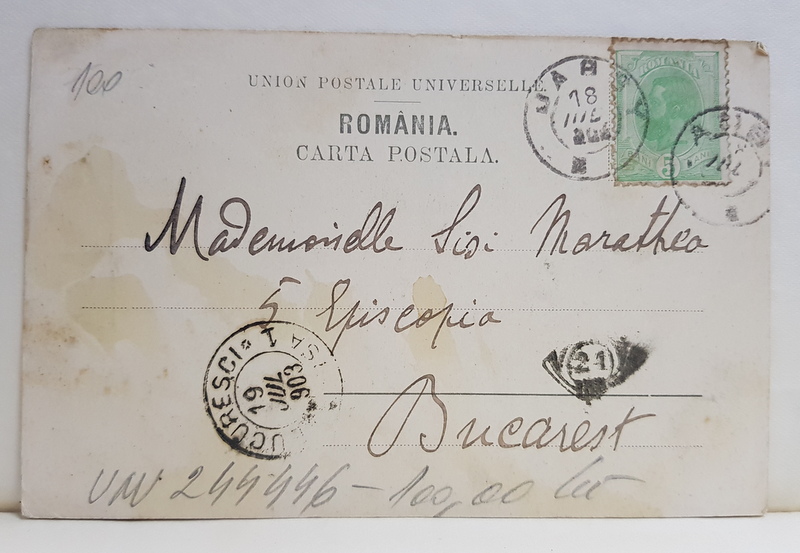 100
UNION POSTALE UNIVERSELLE
ROMÂNIA.
CARTA POSTALA.
18
IUL
ROMANIA
BANI 5 BANI
IUL
Mademoiselle Sisi Marathea
5 Episcopia
BUCURESCI * 1
19
IUL
903
21
Bucarest
244446 - 100,00 lei